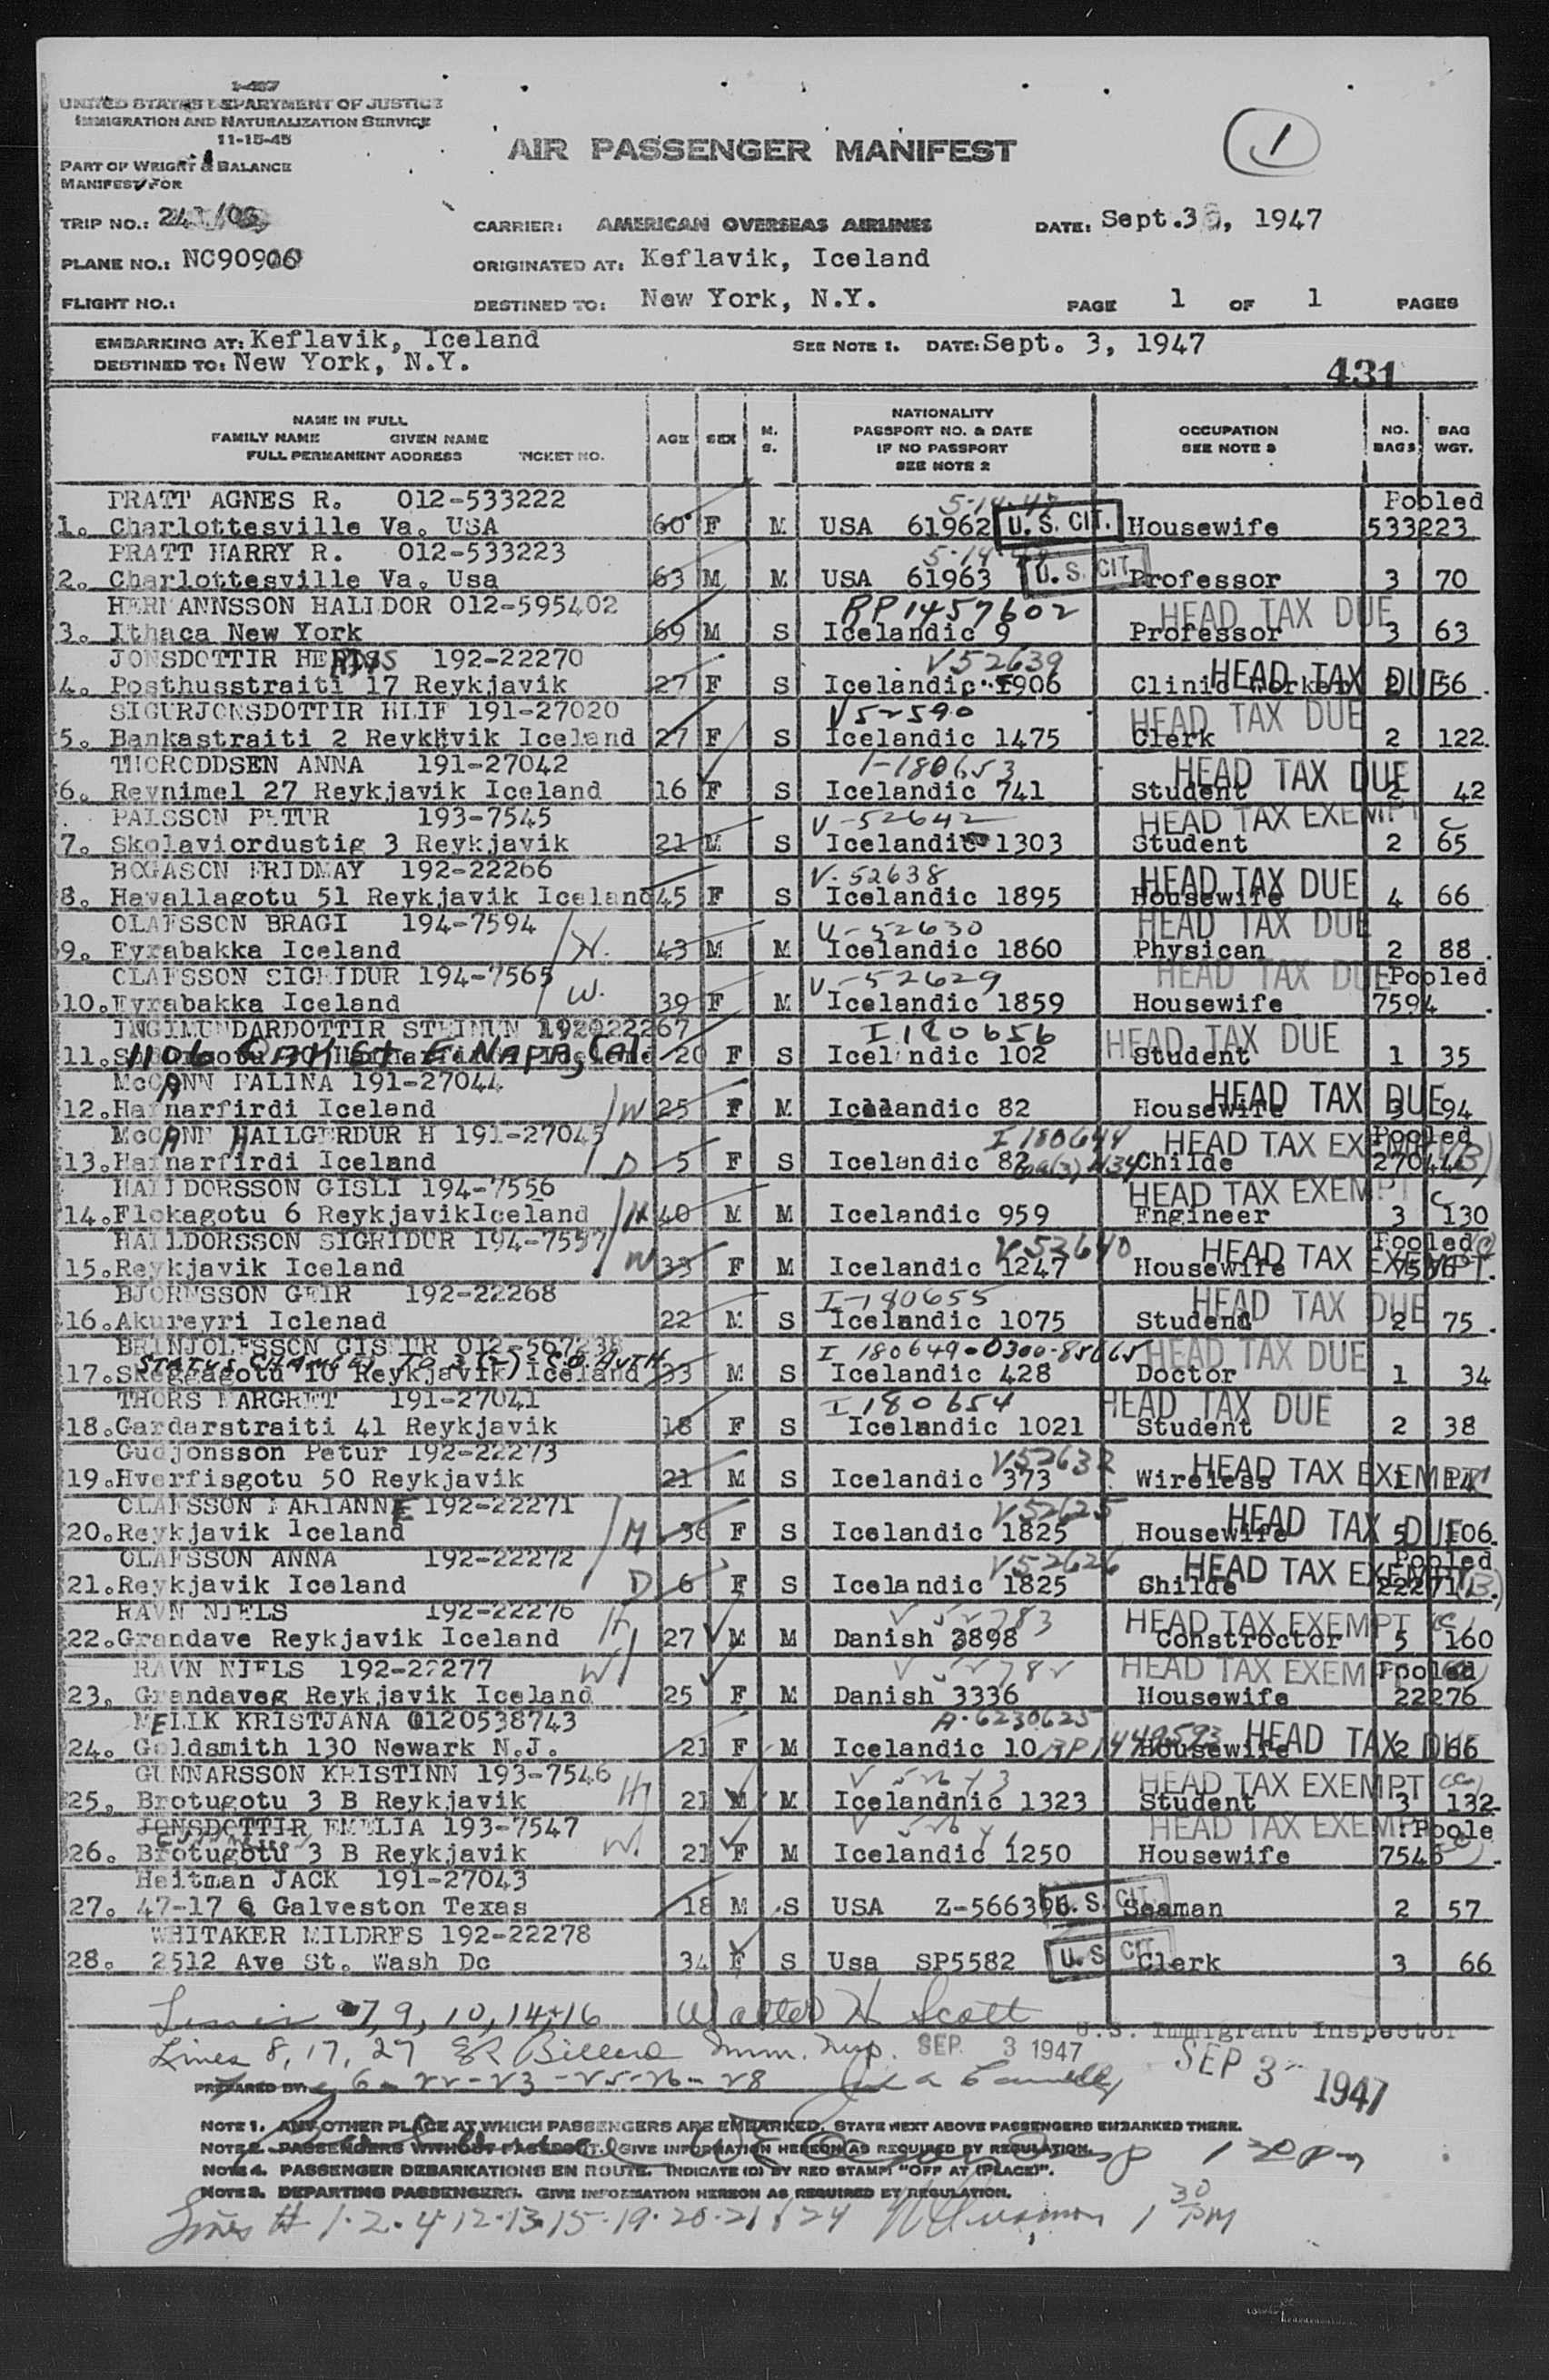 1-467
UNITED STATES DEPARTMENT OF JUSTICE
IMMIGRATION AND NATURALIZATION SERVICE
11-15-45
PART OF WEIGHT & BALANCE
MANIFEST FOR
AIR PASSENGER MANIFEST
1
TRIP NO.:
CARRIER: AMERICAN OVERSEAS AIRLINES
DATE: Sept. 3, 1947
PLANE NO.: NC90906
ORIGINATED AT: Keflavik, Iceland
FLIGHT NO.:
DESTINED TO: New York, N.Y.
PAGE 1 OF 1 PAGES
EMBARKING AT: Keflavik, Iceland
SEE NOTE 1. DATE: Sept. 3, 1947
DESTINED TO: New York, N.Y.
431
NAME IN FULL
FAMILY NAME GIVEN NAME
FULL PERMANENT ADDRESS TICKET NO.
AGE SEX M. S.
NATIONALITY
PASSPORT NO. & DATE
IF NO PASSPORT
SEE NOTE 2
OCCUPATION
SEE NOTE 3
NO. BAGS
BAG WGT.
PRATT AGNES R. 012-533222 5-14-47 Pooled
1. Charlottesville Va. USA 60 F M USA 61962 U.S. CIT. Housewife 533223
PRATT HARRY R. 012-533223 5-14-47
2. Charlottesville Va. Usa 63 M M USA 61963 U.S. CIT. Professor 3 70
HERMANNSSON HALLDOR 012-595402 RP1457602 HEAD TAX DUE
3. Ithaca New York 69 M S Icelandic 9 Professor 3 63
JONSDOTTIR HERDIS 192-22270 V52639 HEAD TAX DUE
4. Posthusstraiti 17 Reykjavik 27 F S Icelandic 1906 Clinic Worker 2 56
SIGURJONSDOTTIR HLIF 191-27020 V52590 HEAD TAX DUE
5. Bankastraiti 2 Reykkvik Iceland 27 F S Icelandic 1475 Clerk 2 122
THORODDSEN ANNA 191-27042 I-180653 HEAD TAX DUE
6. Reynimel 27 Reykjavik Iceland 16 F S Icelandic 741 Student 2 42
PALSSON PETUR 193-7545 V-52642 HEAD TAX EXEMPT C
7. Skolaviordustig 3 Reykjavik 21 M S Icelandic 1303 Student 2 65
BOGASON FRIDMAY 192-22266 V-52638 HEAD TAX DUE
8. Havallagotu 51 Reykjavik Iceland 45 F S Icelandic 1895 Housewife 4 66
OLAFSSON BRAGI 194-7594 V-52630 HEAD TAX DUE
9. Eyrabakka Iceland H. 43 M M Icelandic 1860 Physican 2 88
OLAFSSON SIGRIDUR 194-7565 V-52629 HEAD TAX DUE Pooled
10. Eyrabakka Iceland W. 39 F M Icelandic 1859 Housewife 7594
INGIMUNDARDOTTIR STEINUN 192022267 I180656 HEAD TAX DUE
11. 1106 Oak St. E. Napa, Cal 20 F S Icelandic 102 Student 1 35
McCANN PALINA 191-27044 HEAD TAX DUE
12. Hafnarfirdi Iceland W 25 F M Icelandic 82 Housewife 3 94
McCANN HALLGERDUR H 191-27045 I180644 HEAD TAX EXEMPT Pooled (B)
13. Hafnarfirdi Iceland D 5 F S Icelandic 82 Childe 27044
HALLDORSSON GISLI 194-7556 HEAD TAX EXEMPT C
14. Flokagotu 6 ReykjavikIceland H 40 M M Icelandic 959 Engineer 3 130
HALLDORSSON SIGRIDUR 194-7557 V52640 HEAD TAX EXEMPT Pooled
15. Reykjavik Iceland W 33 F M Icelandic 1247 Housewife 7556
BJORNSSON GEIR 192-22268 I-180655 HEAD TAX DUE
16. Akureyri Iclenad 22 M S Icelandic 1075 Studend 2 75
BRINJOLFSSON GISSUR 012-567238 I 180649-0300-85665 HEAD TAX DUE
STATUS CHANGED TO 3(2) C.O. AUTH
17. Skeggagotu 10 Reykjavik Iceland 33 M S Icelandic 428 Doctor 1 34
THORS MARGRET 191-27041 I180654 HEAD TAX DUE
18. Gardarstraiti 41 Reykjavik 18 F S Icelandic 1021 Student 2 38
Gudjonsson Petur 192-22273 V52632 HEAD TAX EXEMPT
19. Hverfisgotu 50 Reykjavik 21 M S Icelandic 373 Wireless 1 14
OLAFSSON MARIANNE 192-22271 V52625 HEAD TAX DUE
20. Reykjavik Iceland M 36 F S Icelandic 1825 Housewife 5 106
OLAFSSON ANNA 192-22272 V52626 HEAD TAX EXEMPT Pooled
21. Reykjavik Iceland D 6 F S Icelandic 1825 Shilde 22271 (B)
RAVN NIELS 192-22276 V 52783 HEAD TAX EXEMPT
22. Grandave Reykjavik Iceland H 27 M M Danish 3898 Constroctor 5 160
RAVN NIELS 192-22277 V 52782 HEAD TAX EXEMPT Pooled
23. Grandaveg Reykjavik Iceland W 25 F M Danish 3336 Housewife 22276
MELIK KRISTJANA 0120538743 A-6230625 HEAD TAX DUE
24. Goldsmith 130 Newark N.J. 21 F M Icelandic 10 RP1449593 Housewife 2 66
GUNNARSSON KRISTINN 193-7546 HEAD TAX EXEMPT
25. Brotugotu 3 B Reykjavik H 21 M M Icelandnic 1323 Student 3 132
JONSDOTTIR EMELIA 193-7547 HEAD TAX EXEMPT Poole
26. Brotugotu 3 B Reykjavik W. 21 F M Icelandic 1250 Housewife 7546
Heitman JACK 191-27043
27. 47-17 Galveston Texas 18 M S USA Z-566396 U.S. CIT. Seaman 2 57
WHITAKER MILDRES 192-22278
28. 2512 Ave St. Wash Dc 34 F S Usa SP5582 U.S. CIT. Clerk 3 66
7, 9, 10, 14, 16 Walter H Scott
U.S. Immigrant Inspector
Lines 8, 17, 27 Imm. Insp. SEP 3 1947
SEP 3 1947
PREPARED BY: 6-22-23-25-26-28
NOTE 1. ANY OTHER PLACE AT WHICH PASSENGERS ARE EMBARKED, STATE NEXT ABOVE PASSENGERS EMBARKED THERE.
NOTE 2. PASSENGERS WITHOUT PASSPORT. GIVE INFORMATION HEREON AS REQUIRED BY REGULATION.
1 30 pm
NOTE 4. PASSENGER DEBARKATIONS EN ROUTE. INDICATE (D) BY RED STAMP "OFF AT (PLACE)".
NOTE 3. DEPARTING PASSENGERS. GIVE INFORMATION HEREON AS REQUIRED BY REGULATION.
Lines # 1-2-4-12-13-15-19-20-21 & 24 1 30 PM